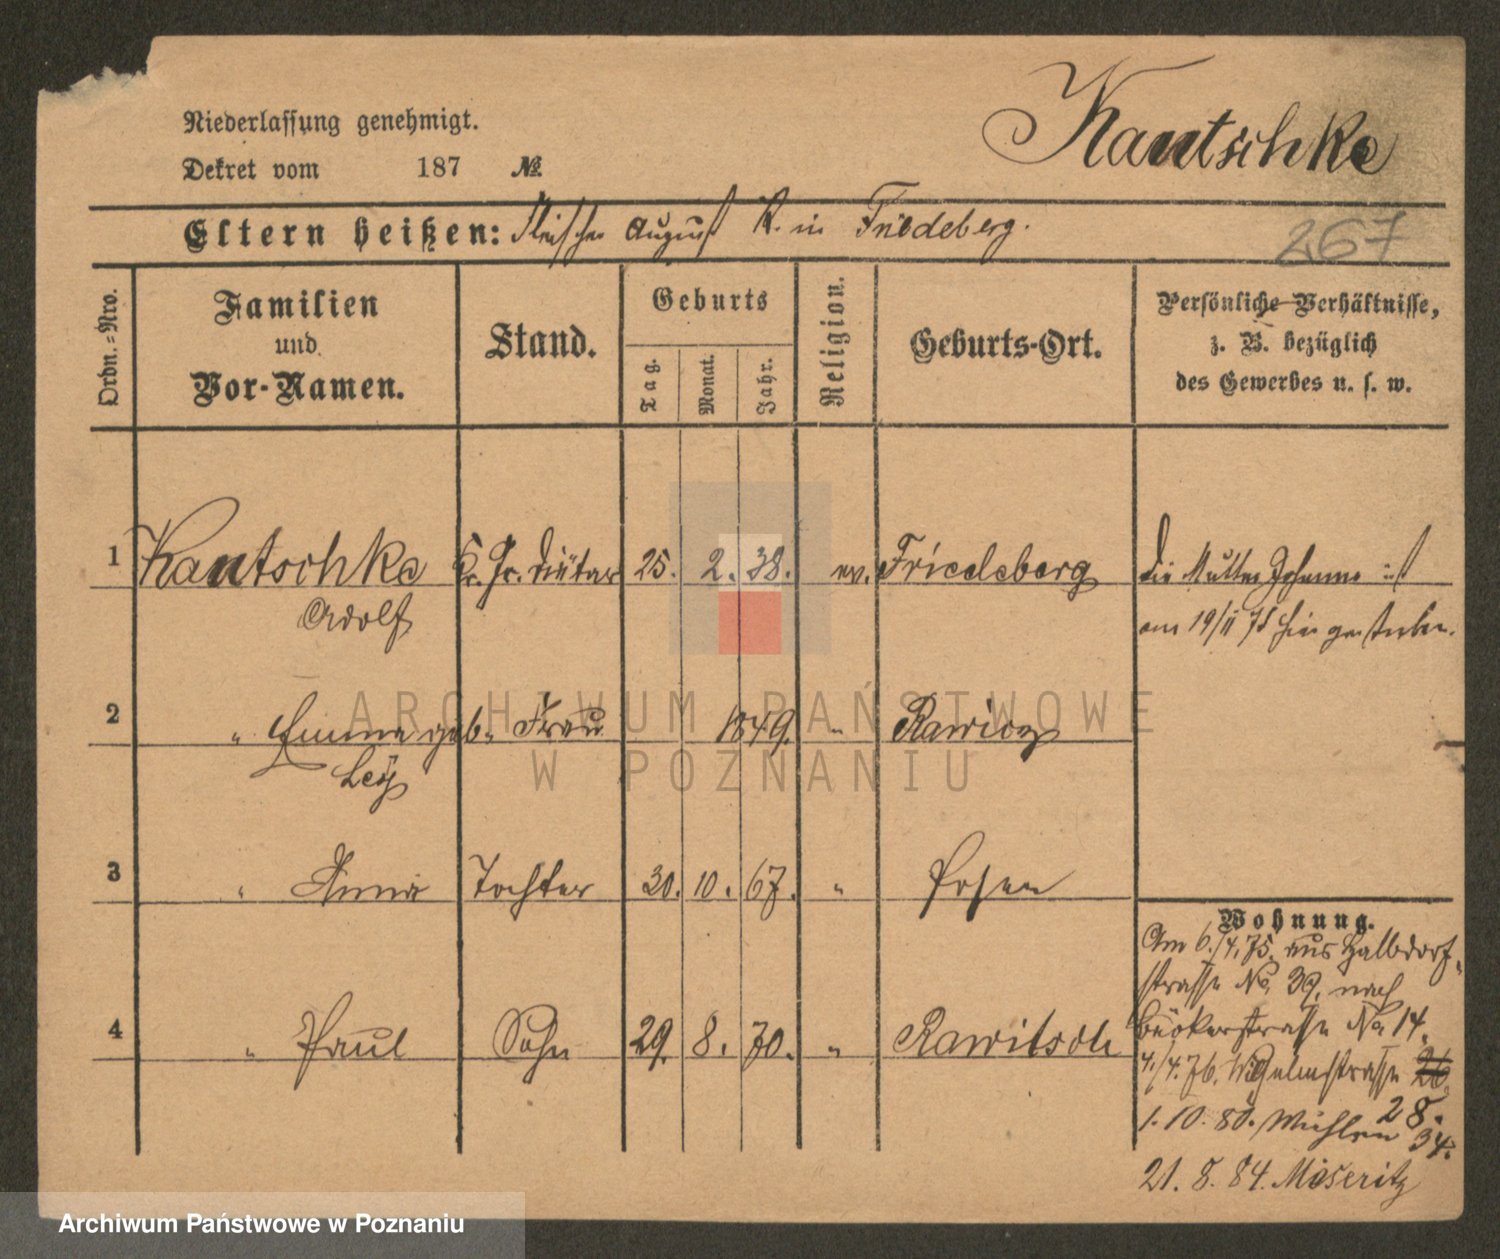 Niederlassung genehmigt.
Kautschke
Dekret vom 187 №
Eltern heißen: Fleischer August K. in Friedeberg.
267
Ordn.-Nro.
Familien
und
Vor-Namen.
Stand.
Geburts
Tag.
Monat.
Jahr.
Religion.
Geburts-Ort.
Persönliche Verhältnisse,
z. B. bezüglich
des Gewerbes u. s. w.
1 Kautschke Kr. Gr. Diätar 25. 2. 38. ev. Friedeberg Die Mutter Johanna ist
Adolf am 19/II 75 hier gestorben.
2 " Emma geb. Frau 1849. " Rawicz
Ley
3 " Anna Tochter 30. 10. 67. " Posen
Wohnung.
Am 6./4.75. aus Halbdorf-
strasse No. 39. nach
4 " Paul Sohn 29. 8. 70. " Rawitsch
Bäckerstrasse No. 14.
4./4.76. Wilhelmstrasse 26
28.
1.10.80. Mühlen 34.
21.8.84. Meseritz
ARCHIWUM PAŃSTWOWE
W POZNANIU
Archiwum Państwowe w Poznaniu